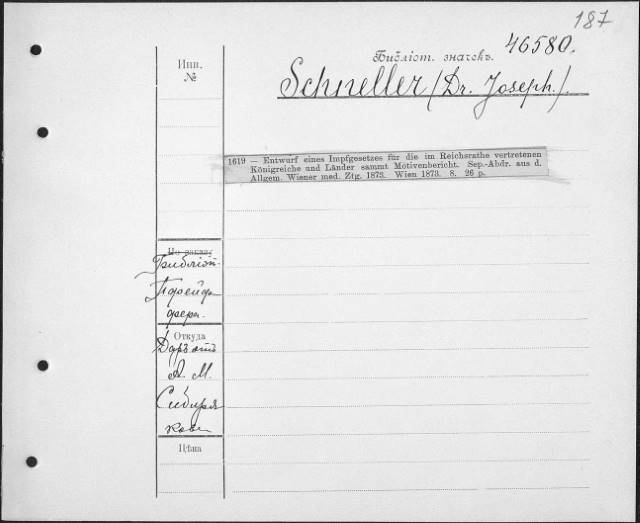 187
46580.
Инв.
№
Библіот. значекъ.
Schneller (Dr. Joseph.).
1619 — Entwurf eines Impfgesetzes für die im Reichsrathe vertretenen
Königreiche und Länder sammt Motivenbericht. Sep.-Abdr. aus d.
Allgem. Wiener med. Ztg. 1873. Wien 1873. 8. 26 p.
Библіот.
Пфейф
фера.
Откуда
Даръ отъ
А. М.
Сибиря
кова
Цѣна